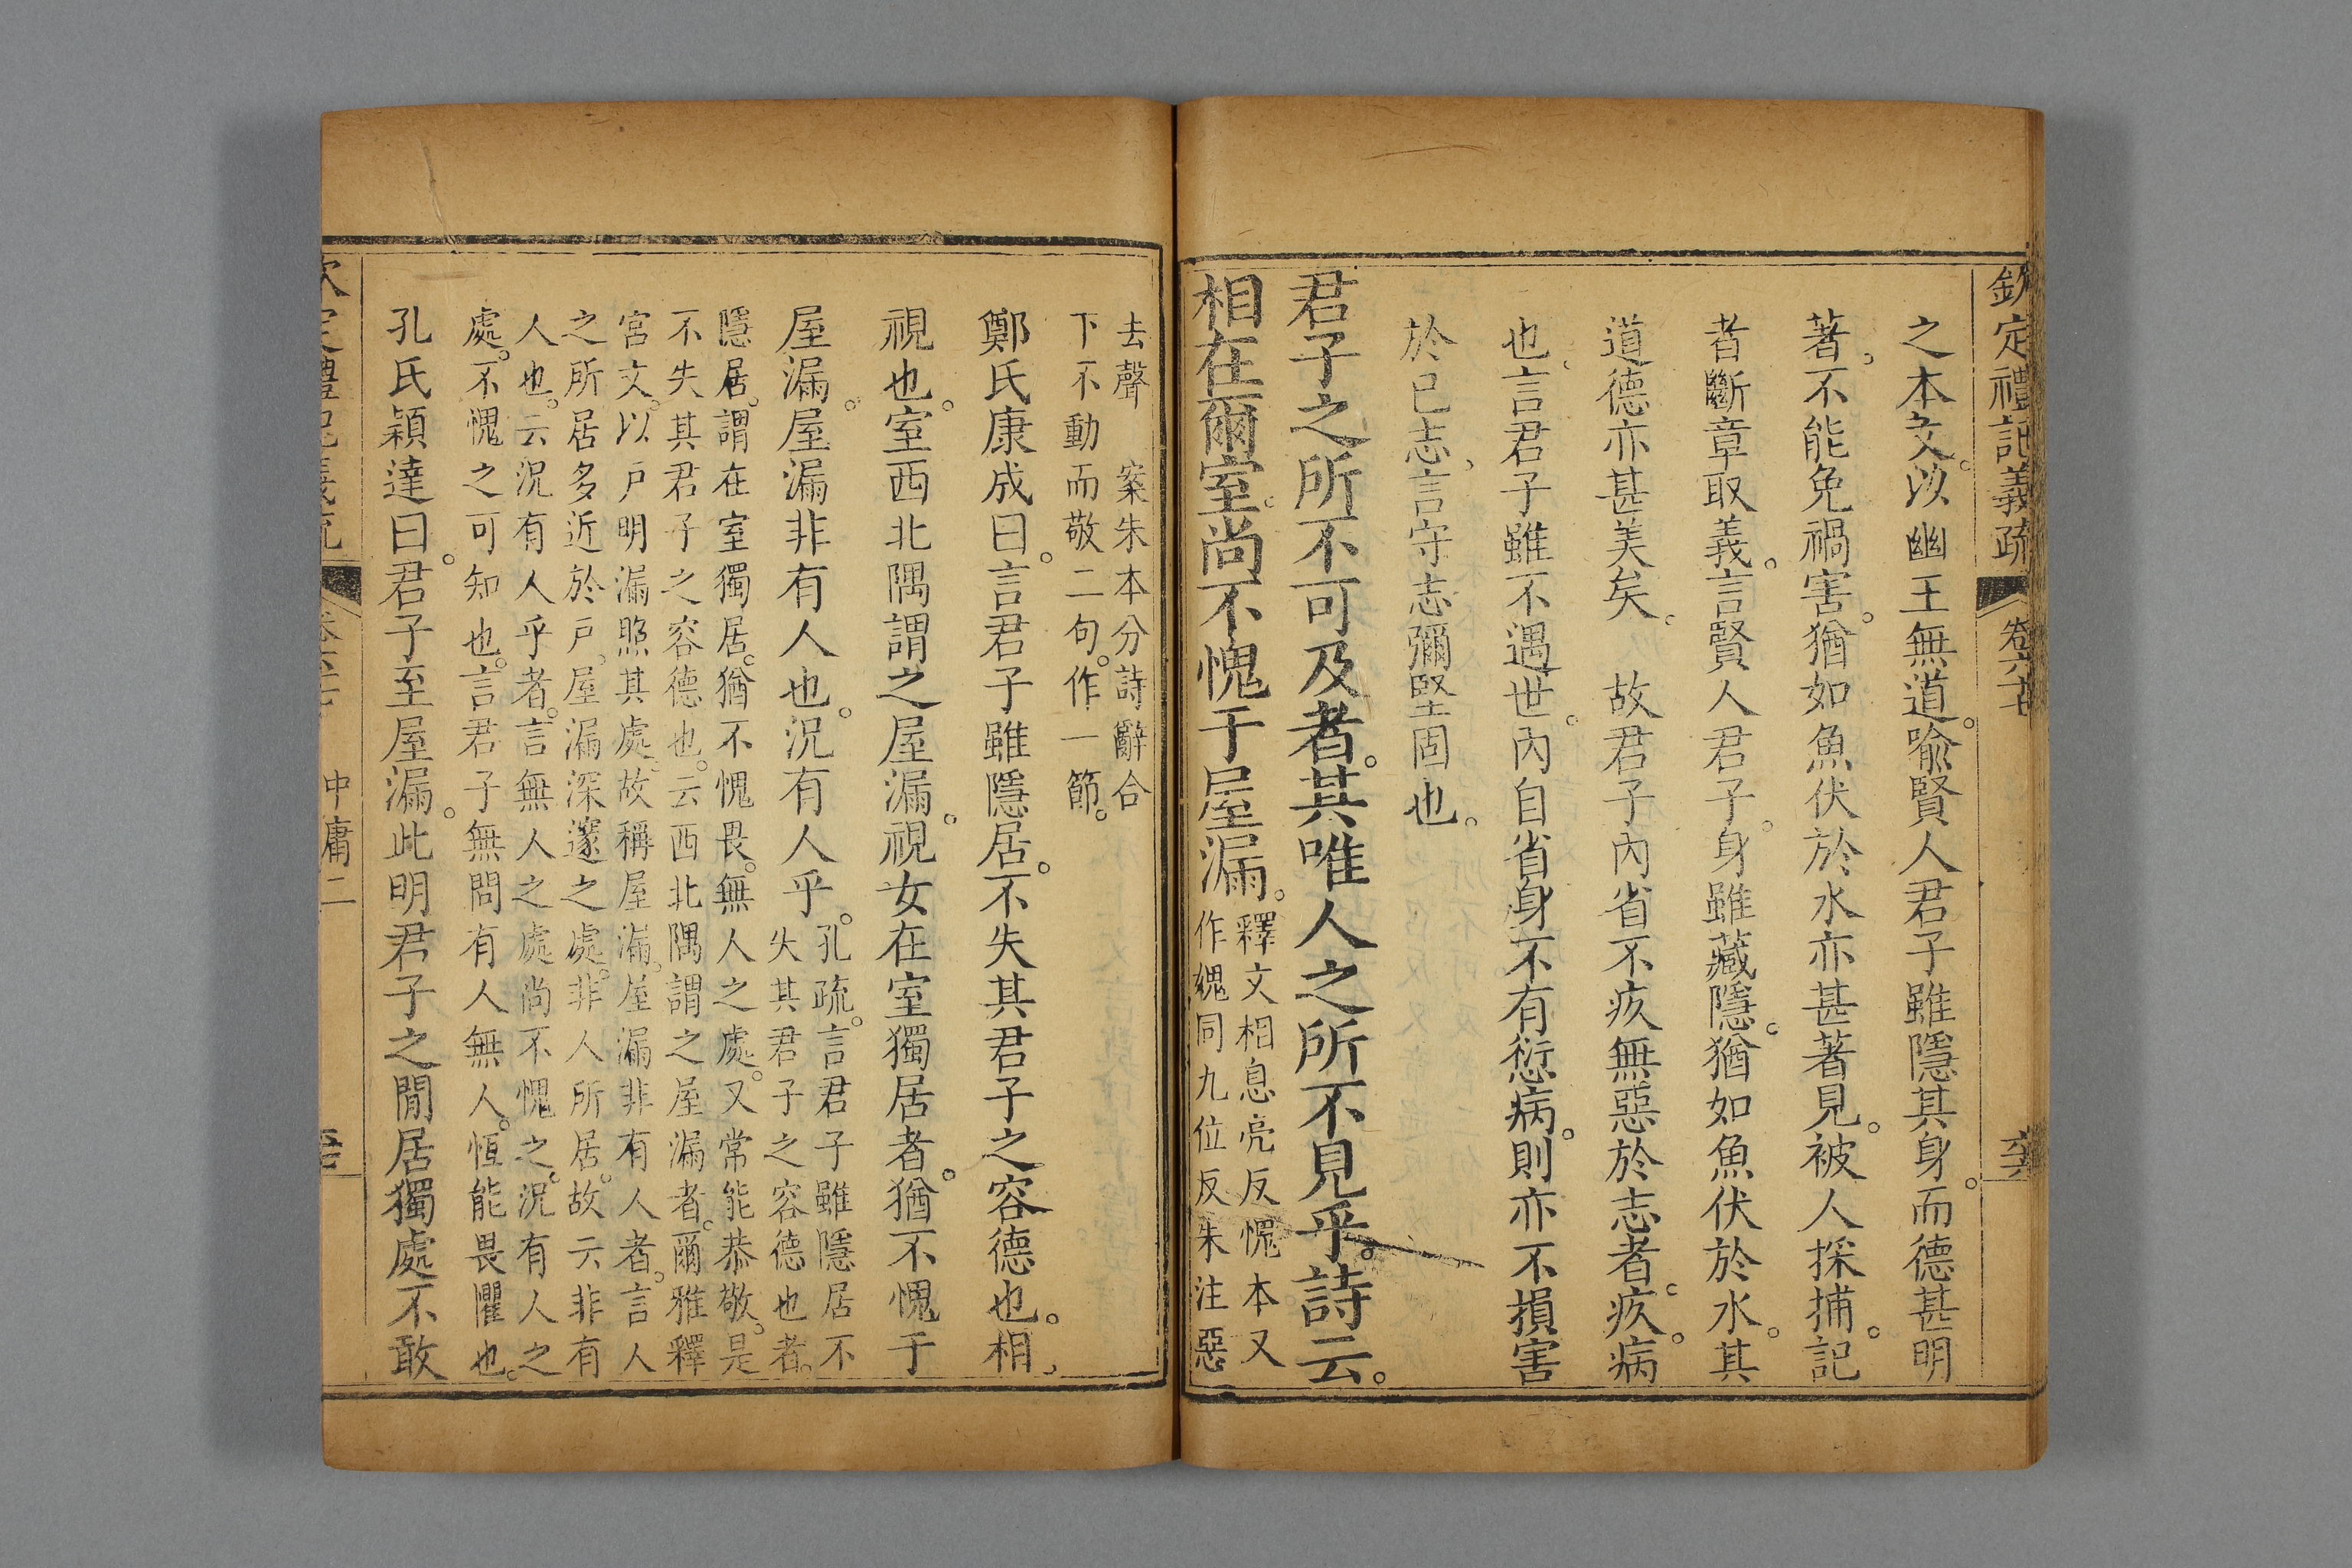 欽定禮記義疏 卷六十
之本文。以幽王無道。喻賢人君子雖隱其身。而德甚明
著。不能免禍害。猶如魚伏於水亦甚著見。被人採捕。記
者斷章取義。言賢人君子。身雖藏隱。猶如魚伏於水。其
道德亦甚美矣。 故君子內省不疚無惡於志者。疚。病
也。言君子雖不遇世。內自省身不有愆病。則亦不損害
於已志。言守志彌堅固也。
君子之所不可及者。其唯人之所不見乎。詩云。
相在爾室。尚不愧于屋漏。
釋文相息亮反愧本又
作媿同九位反朱注惡
去聲 案朱本分詩辭合
下不動而敬二句。作一節。
鄭氏康成曰。言君子雖隱居。不失其君子之容德也。相、
視也。室西北隅謂之屋漏。視女在室獨居者。猶不愧于
屋漏。屋漏非有人也。況有人乎。
孔疏。言君子雖隱居不
失其君子之容德也者。
隱居。謂在室獨居。猶不愧畏。無人之處。又常能恭敬。是
不失其君子之容德也。云西北隅謂之屋漏者。爾雅釋
宮文。以戶明漏照其處。故稱屋漏。屋漏非有人者。言人
之所居多近於戶。屋漏深邃之處。非人所居。故云非有
人也。云況有人乎者。言無人之處尚不愧之。況有人之
處。不愧之可知也。言君子無問有人無人。恆能畏懼也。
孔氏穎達曰。君子至屋漏。此明君子之閒居獨處不敢
中庸二